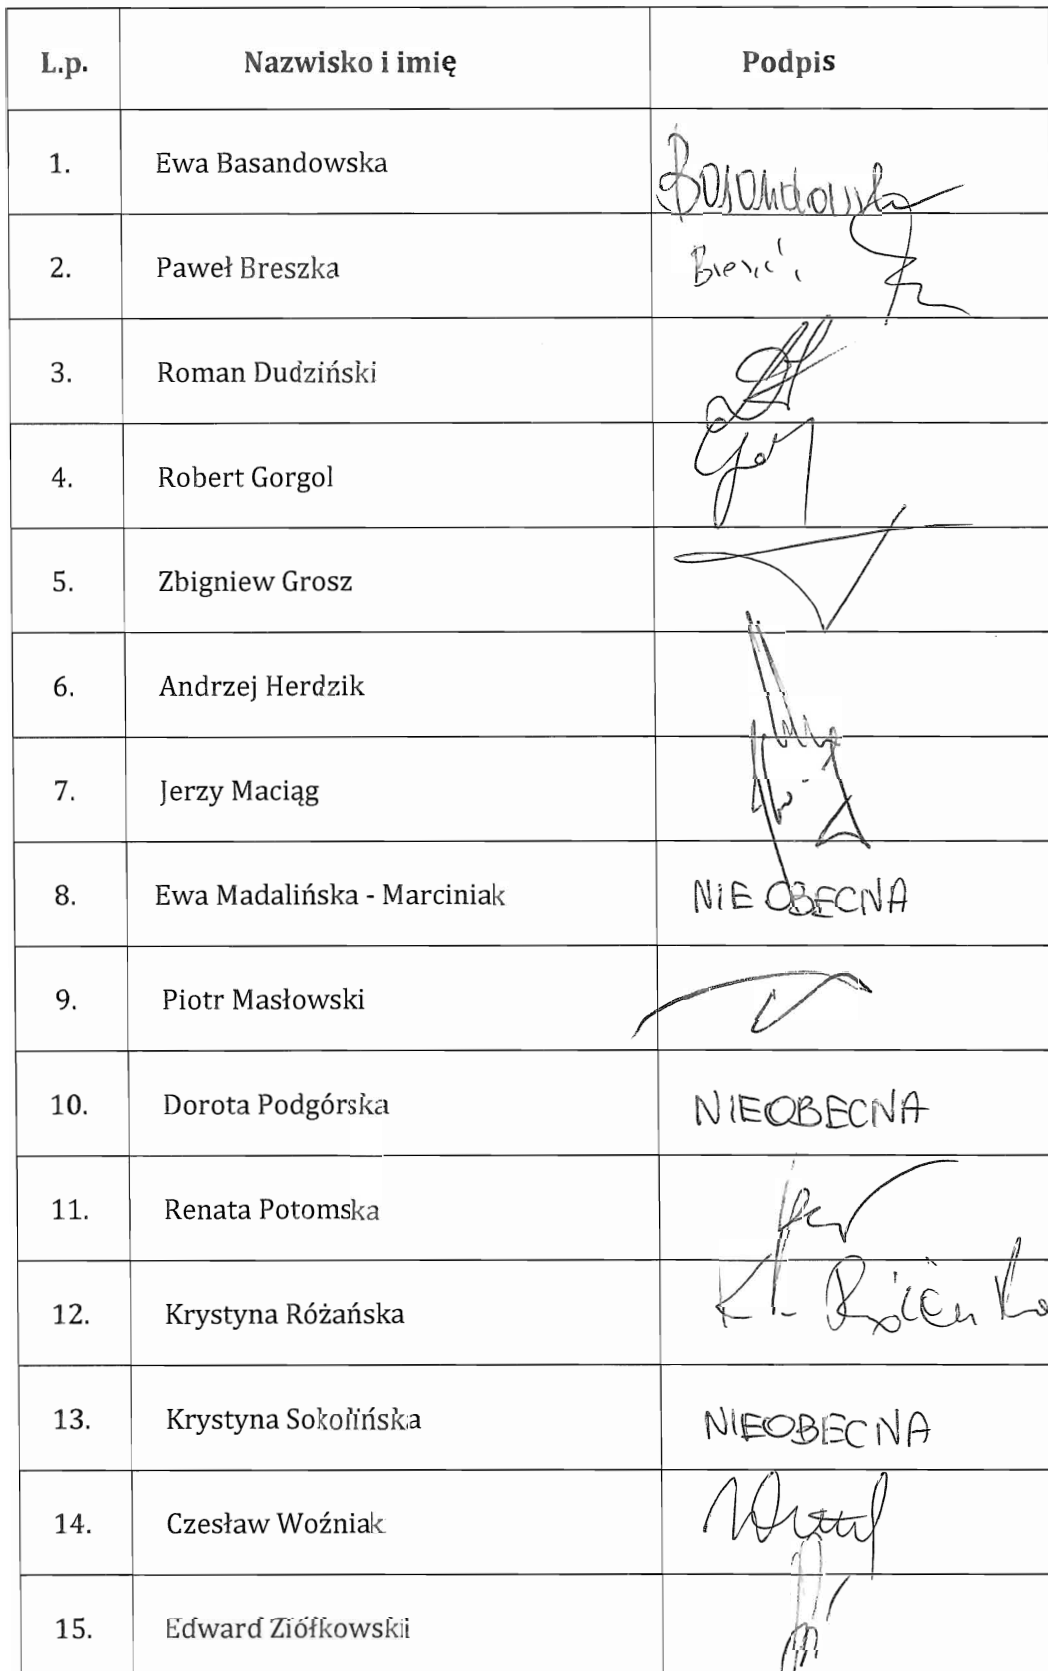 L.p. Nazwisko i imię Podpis
1. Ewa Basandowska Basandowska
2. Paweł Breszka
3. Roman Dudziński
4. Robert Gorgol
5. Zbigniew Grosz
6. Andrzej Herdzik
7. Jerzy Maciąg
8. Ewa Madalińska - Marciniak NIEOBECNA
9. Piotr Masłowski
10. Dorota Podgórska NIEOBECNA
11. Renata Potomska
12. Krystyna Różańska
13. Krystyna Sokolińska NIEOBECNA
14. Czesław Woźniak
15. Edward Ziółkowski